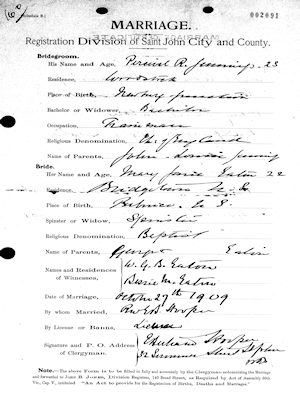 002091
MARRIAGE.
Registration Division of Saint John City and County.
Bridegroom.
His Name and Age, Percival R. Jennings 23
Residence, Woodstock
Place of Birth, Newbury
Bachelor or Widower, Bachelor
Occupation, Trainman
Religious Denomination, Ch. of England
Name of Parents, John Louisa Jennings
Bride.
Her Name and Age, Mary Jane Eaton 22
Residence, Bridgetown N.S.
Place of Birth, N S
Spinster or Widow, Spinster
Religious Denomination, Baptist
Name of Parents, George Eaton
Names and Residences of Witnesses, W. G. B. Eaton
Bessie M. Eaton
Date of Marriage, October 27th 1909
By whom Married, Rev E B Hooper
By License or Banns, License
Signature and P. O. Address of Clergyman. Hooper
Summer Street St John
NOTE.—The above Form is to be filled in fully and accurately by the Clergyman solemnizing the Marriage
and forwarded to JOHN B. JONES, Division Registrar,
Vic., Cap. V., intituled "An Act to provide for the Registration of Births, Deaths and Marriages."